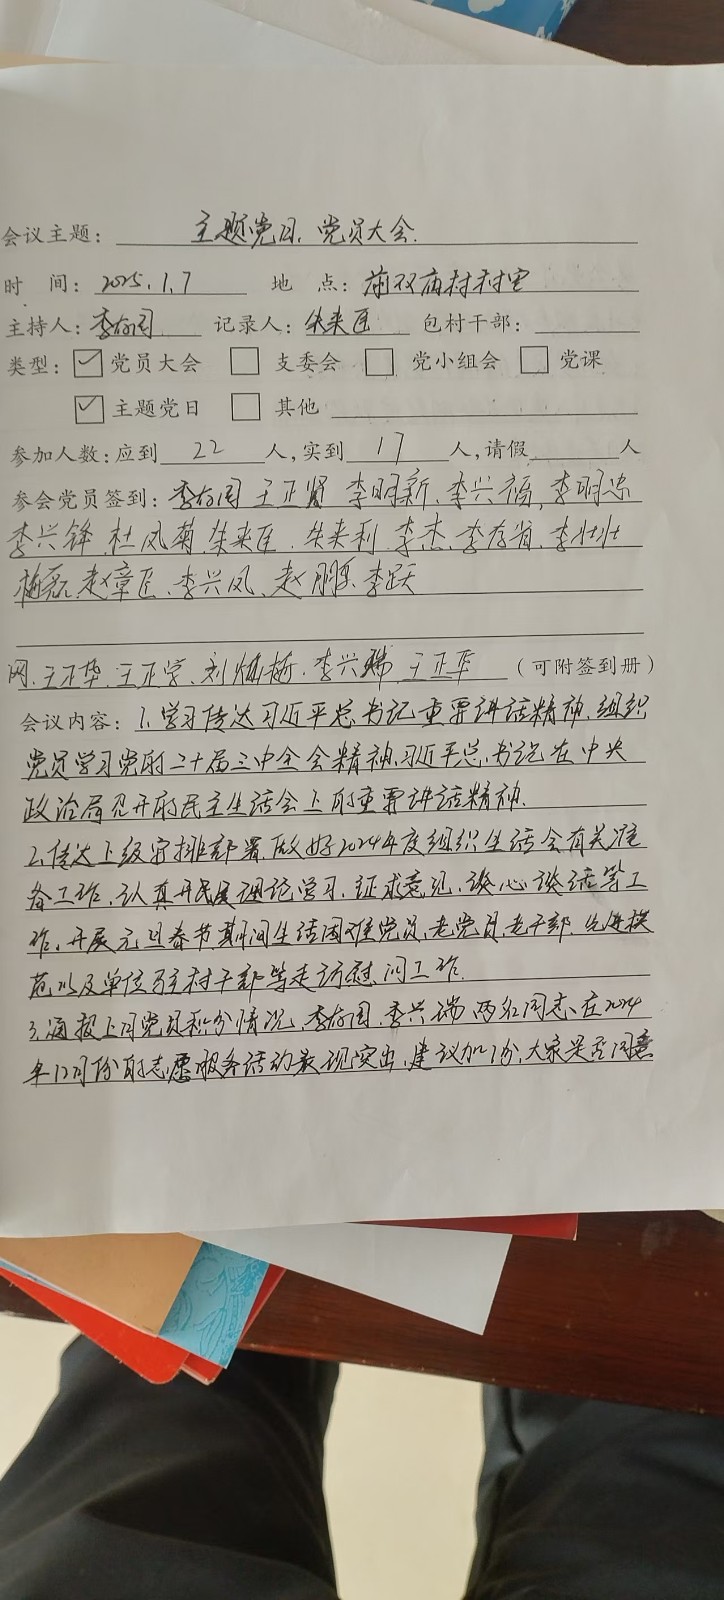 会议主题: 主题党日、党员大会.
时 间: 2025.1.7 地 点: 前双庙村村室
主持人: 李存周 记录人: 朱来臣 包村干部:
类型: ☑ 党员大会 □ 支委会 □ 党小组会 □ 党课
☑ 主题党日 □ 其他
参加人数: 应到 22 人, 实到 17 人, 请假 人
参会党员签到: 李存周 王正贤 李明新、李兴福、李明忠
李兴锋、杜凤菊、朱来臣、朱来利、李杰、李存省、李壮壮
赵章臣、李兴凤、李跃
网: 王正华、王正学、李兴瑞 王正军 (可附签到册)
会议内容: 1、学习传达习近平总书记重要讲话精神、组织
党员学习党的二十届三中全会精神、习近平总书记在中央
政治局召开的民主生活会上的重要讲话精神.
2、传达上级安排部署、做好2024年度组织生活会有关准
备工作、认真开展理论学习、征求意见、谈心谈话等工
作、开展元旦春节期间生活困难党员、老党员、老干部、先进模
范以及单位驻村干部等走访慰问工作.
3、通报上月党员积分情况、李存周、李兴瑞两名同志在2024
年12月份的志愿服务活动表现突出、建议加1分、大家是否同意